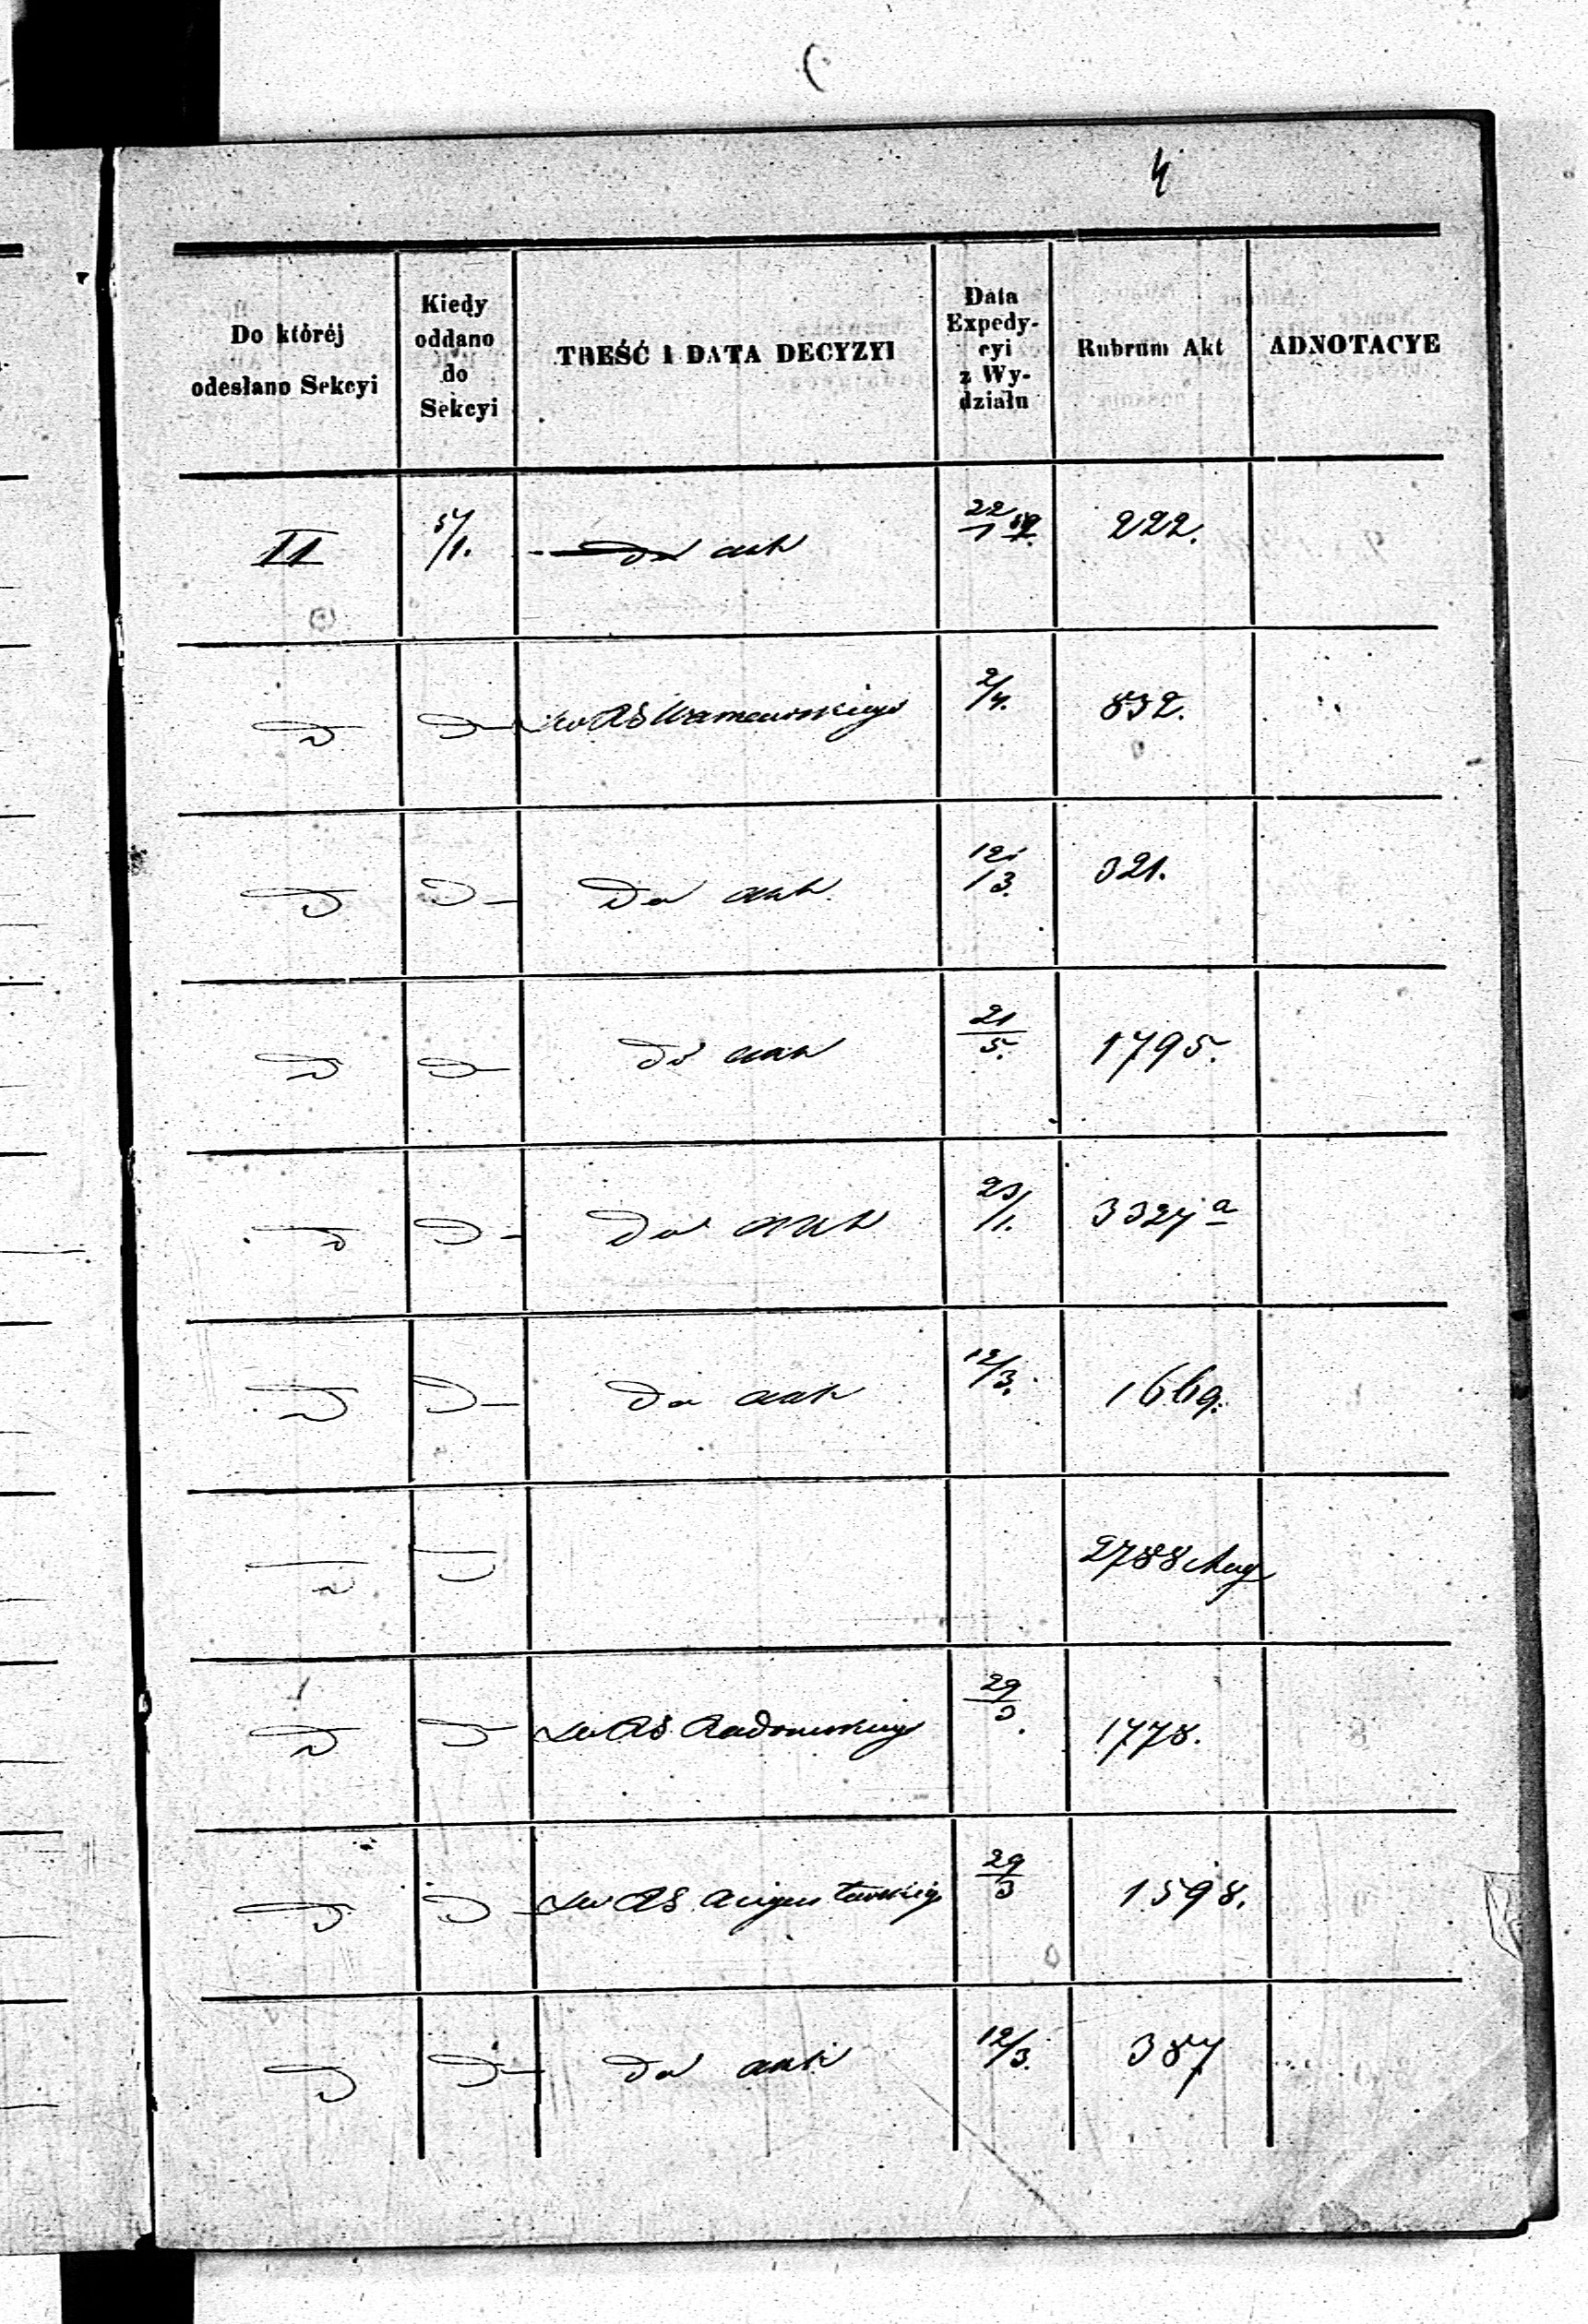 4
Do któréj odesłano Sekcyi | Kiedy oddano do Sekcyi | TREŚĆ I DATA DECYZYI | Data Expedycyi z Wydziału | Rubrum Akt | ADNOTACYE
II | 5/1. | Do akt | 22/1 | 222.
D | D | do RG Warszawskiego | 2/4. | 832.
D | D | Do akt. | 12/3. | 321.
D | D | Do akt | 21/5. | 1795.
D | D | Do akt | 23/1. | 3324 a
D | D | Do akt | 12/3. | 1669.
D | D | 2788 Aug
D | D | do RG Radomskiego | 29/3. | 1778.
D | D | do RG Augustowskiego | 29/3 | 1598.
D | D | Do akt | 12/3. | 387